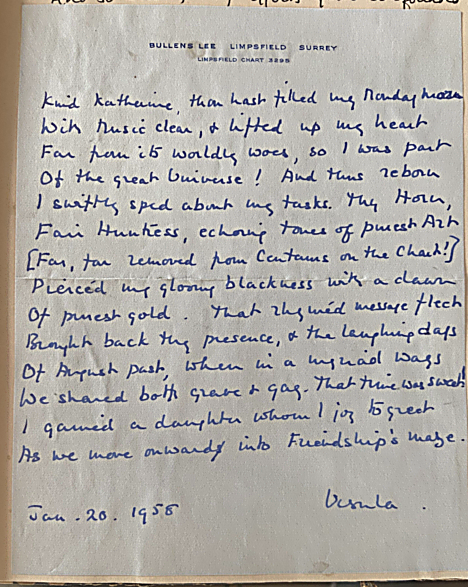 BULLENS LEE LIMPSFIELD SURREY
LIMPSFIELD CHART 3295
Kind Katherine, thou hast filled my Monday morn
With Music clear, & lifted up my heart
Far from its worldly woes, so I was part
Of the great Universe! And thus reborn
I swiftly sped about my tasks. Thy Horn,
Fair Huntress, echoing tones of purest Art
[Far, far removed from Centaurs on the Chart!]
Pierced my gloomy blackness with a dawn
Of purest gold. That rhymed message fleet
Brought back thy presence, & the laughing days
Of August past, when in a myriad ways
We shared both grave & gay. That time was sweet!
I gained a daughter whom I joy to greet
As we move onwards into Friendship's maze.
Ursula.
Jan. 20. 1958